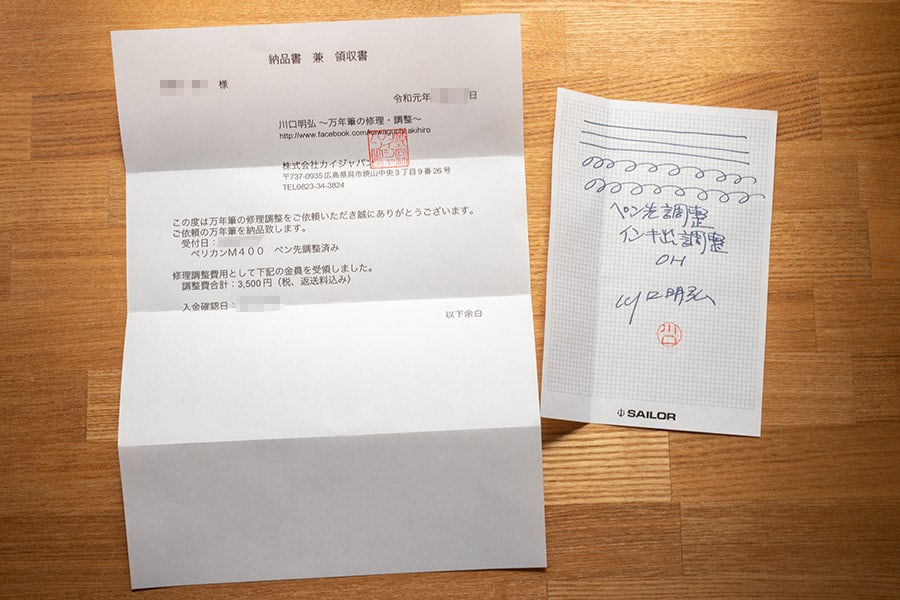 納品書 兼 領収書
様
令和元年 日
川口明弘 ～万年筆の修理・調整～
http://www.facebook.com/kawaguchi.akihiro
株式会社カイジャパン
〒737-0935 広島県呉市焼山中央３丁目９番26号
TEL0823-34-3824
この度は万年筆の修理調整をご依頼いただき誠にありがとうございます。
ご依頼の万年筆を納品致します。
受付日：
ペリカンＭ４００ ペン先調整済み
修理調整費用として下記の金員を受領しました。
調整費合計：3,500円（税、返送料込み）
入金確認日：
以下余白
ペン先調整
インキ出調整
OH
川口明弘
川口
SAILOR